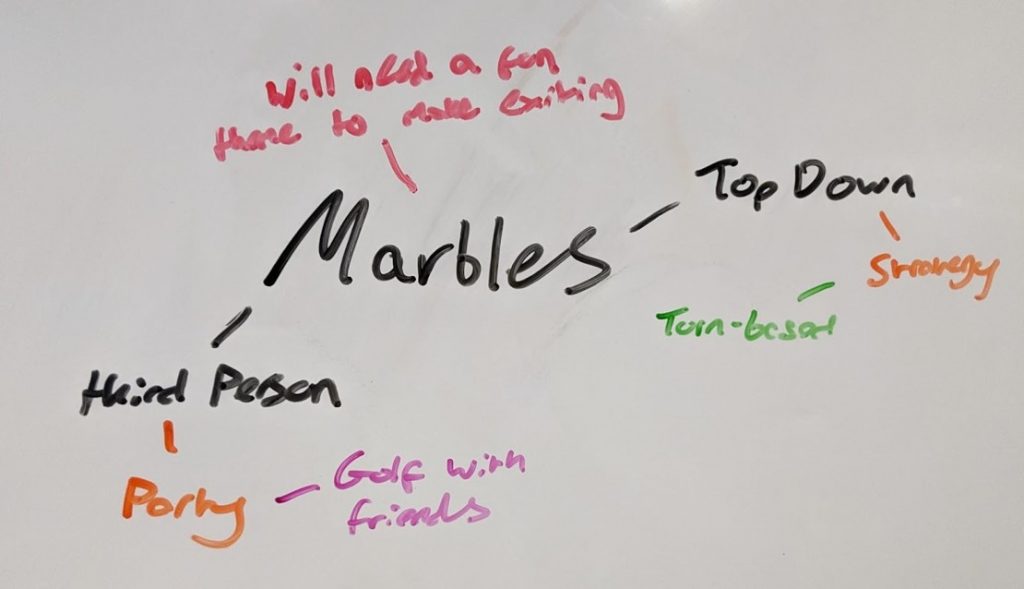 will need a fun
theme to make exiting
Marbles
Top Down
Strategy
Turn-based
third Person
Party
Golf with
friends